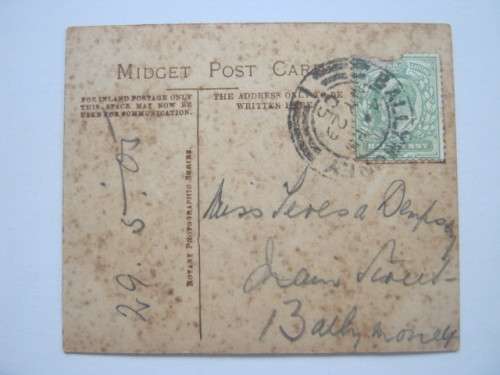 MIDGET POST CARD
FOR INLAND POSTAGE ONLY
THIS SPACE MAY NOW BE
USED FOR COMMUNICATION.
THE ADDRESS ONLY TO BE
WRITTEN HERE
ROTARY PHOTOGRAPHIC SERIES.
29.5.05
BALLYMONEY
HALFPENNY
Miss Teresa Dempsey
Main Street
Ballymoney